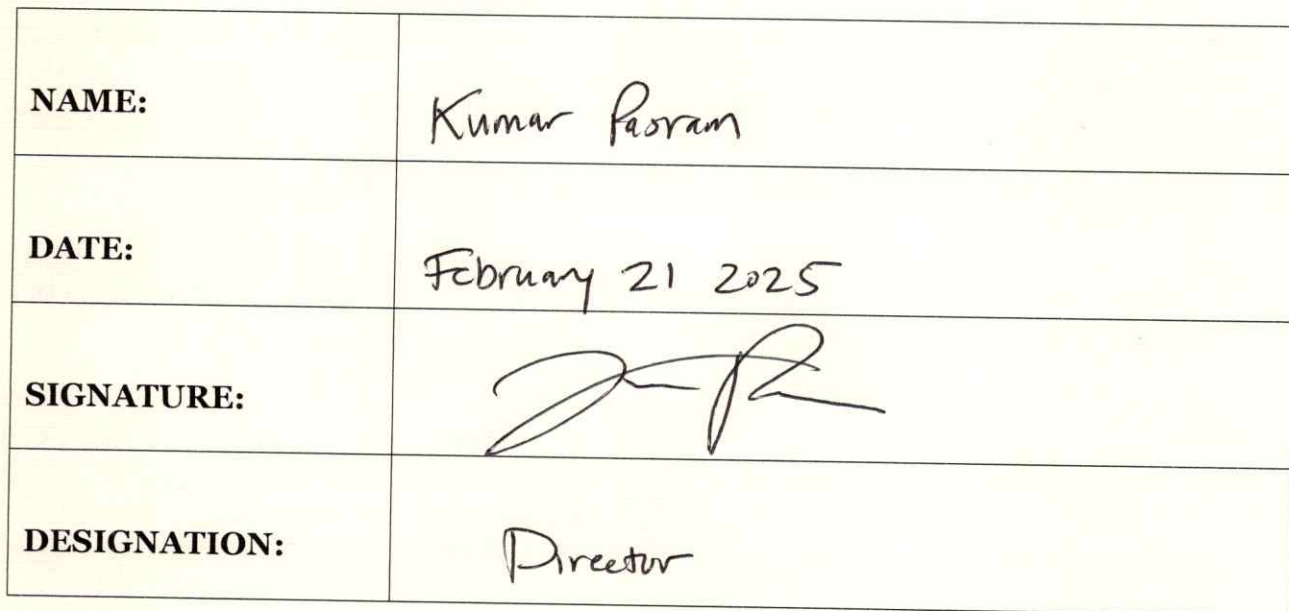 NAME: Kumar Paoram
DATE: February 21 2025
SIGNATURE:
DESIGNATION: Director